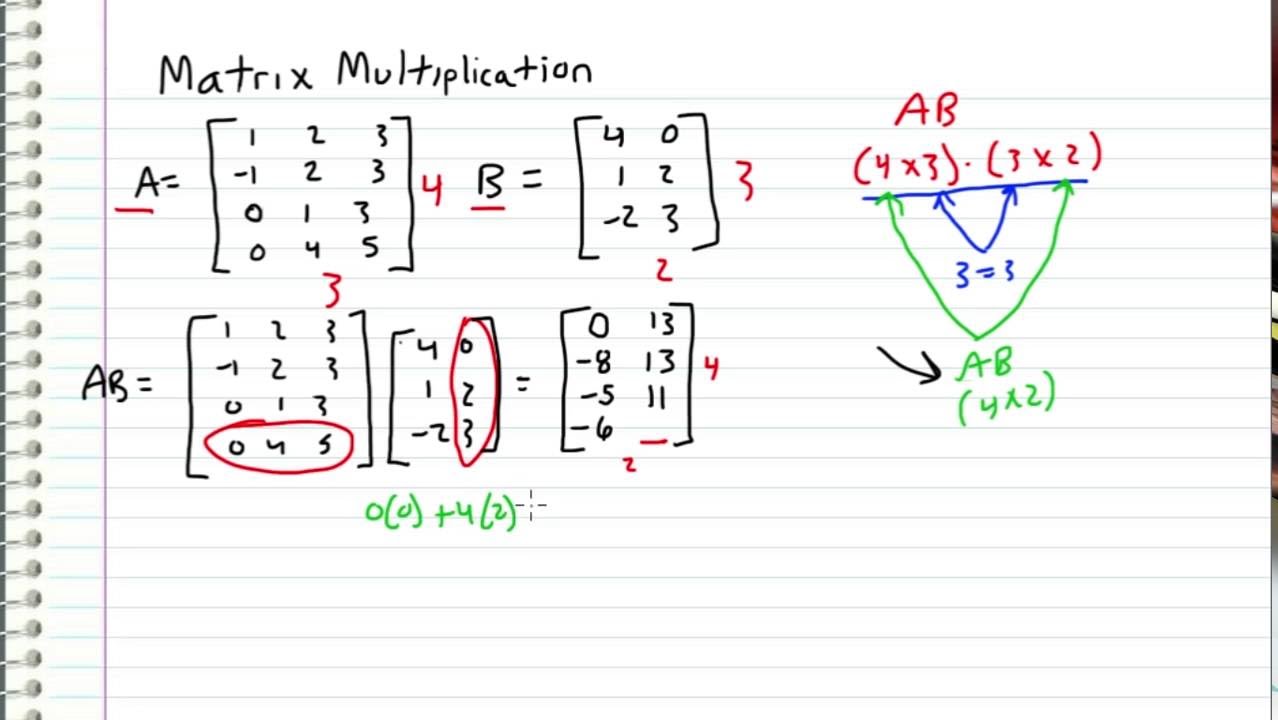 Matrix Multiplication
A= [1 2 3
-1 2 3
0 1 3
0 4 5] 4
3
B = [4 0
1 2
-2 3] 3
2
AB
(4x3)·(3x2)
3=3
AB
(4x2)
AB= [1 2 3
-1 2 3
0 1 3
0 4 5] [4 0
1 2
-2 3] = [0 13
-8 13
-5 11
-6 _] 4
2
0(0) +4(2)